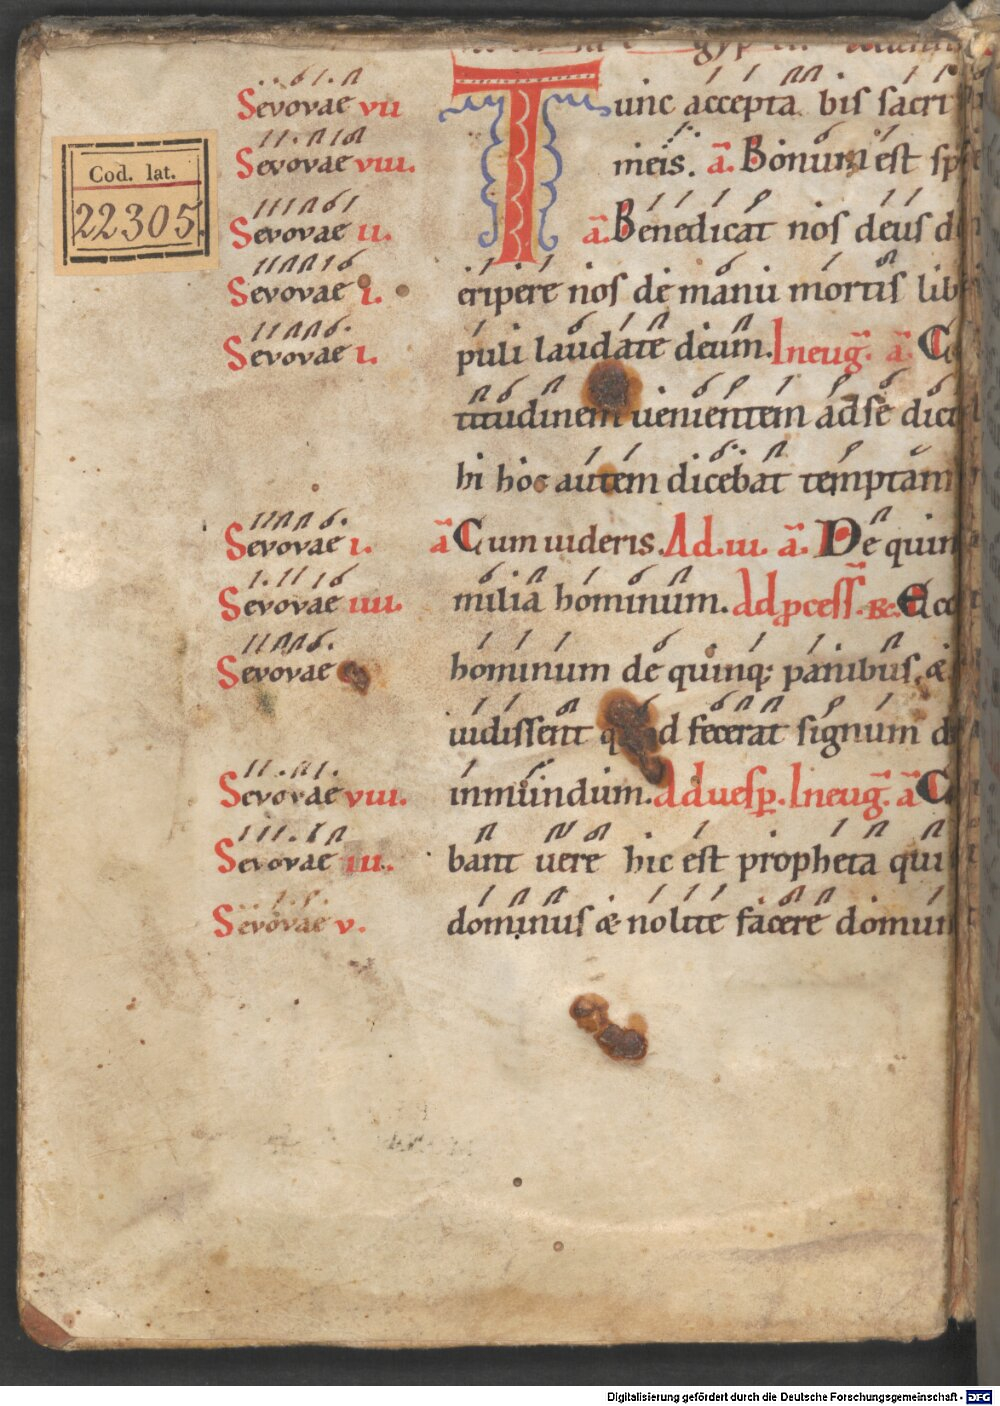 Sevovae vii
Tunc accepta bis sacri
Sevovae viii.
meis. a. Bonum est sp
Cod. lat.
22305.
Sevovae ii.
a. Benedicat nos deus d
Sevovae i.
eripere nos de manu mortis lib
Sevovae i.
puli laudate deum. In eug. a. C
titudinem uenientem ad se dic
hi hoc autem dicebat temptam
Sevovae i.
a Cum uideris. Ad .iii. a. De quin
Sevovae iiii.
milia hominum. Ad pcess. R. Ecc
Sevovae
hominum de quinq; panibus, æ
uidissent quod fecerat signum d
Sevovae viii.
in mundum. Ad uesp. In eug. a C
Sevovae iii.
bant uere hic est propheta qui
Sevovae v.
dominus æ nolite facere domum
Digitalisierung gefördert durch die Deutsche Forschungsgemeinschaft - DFG